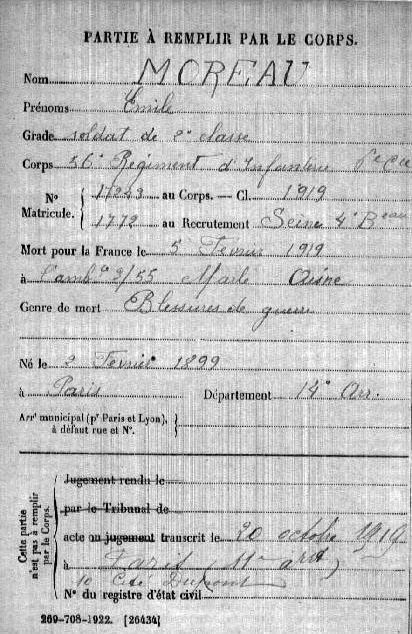 PARTIE À REMPLIR PAR LE CORPS.
Nom MOREAU
Prénoms Émile
Grade soldat de 2e classe
Corps 36e Régiment d'Infanterie 1e Cie
N° Matricule. { 17249 au Corps. — Cl. 1919
1772 au Recrutement Seine 4e Beau
Mort pour la France le 5 Février 1919
à l'ambce 2/55 Marle Aisne
Genre de mort Blessures de guerre
Né le 2 Février 1899
à Paris Département 14e Arr.
Arrt municipal (pr Paris et Lyon),
à défaut rue et N°.
Cette partie n'est pas à remplir par le Corps.
Jugement rendu le
par le Tribunal de
acte ou jugement transcrit le 20 octobre 1919
à Paris (11e arrt)
10 Cité Dupont
N° du registre d'état civil
269-708-1922. [26434]